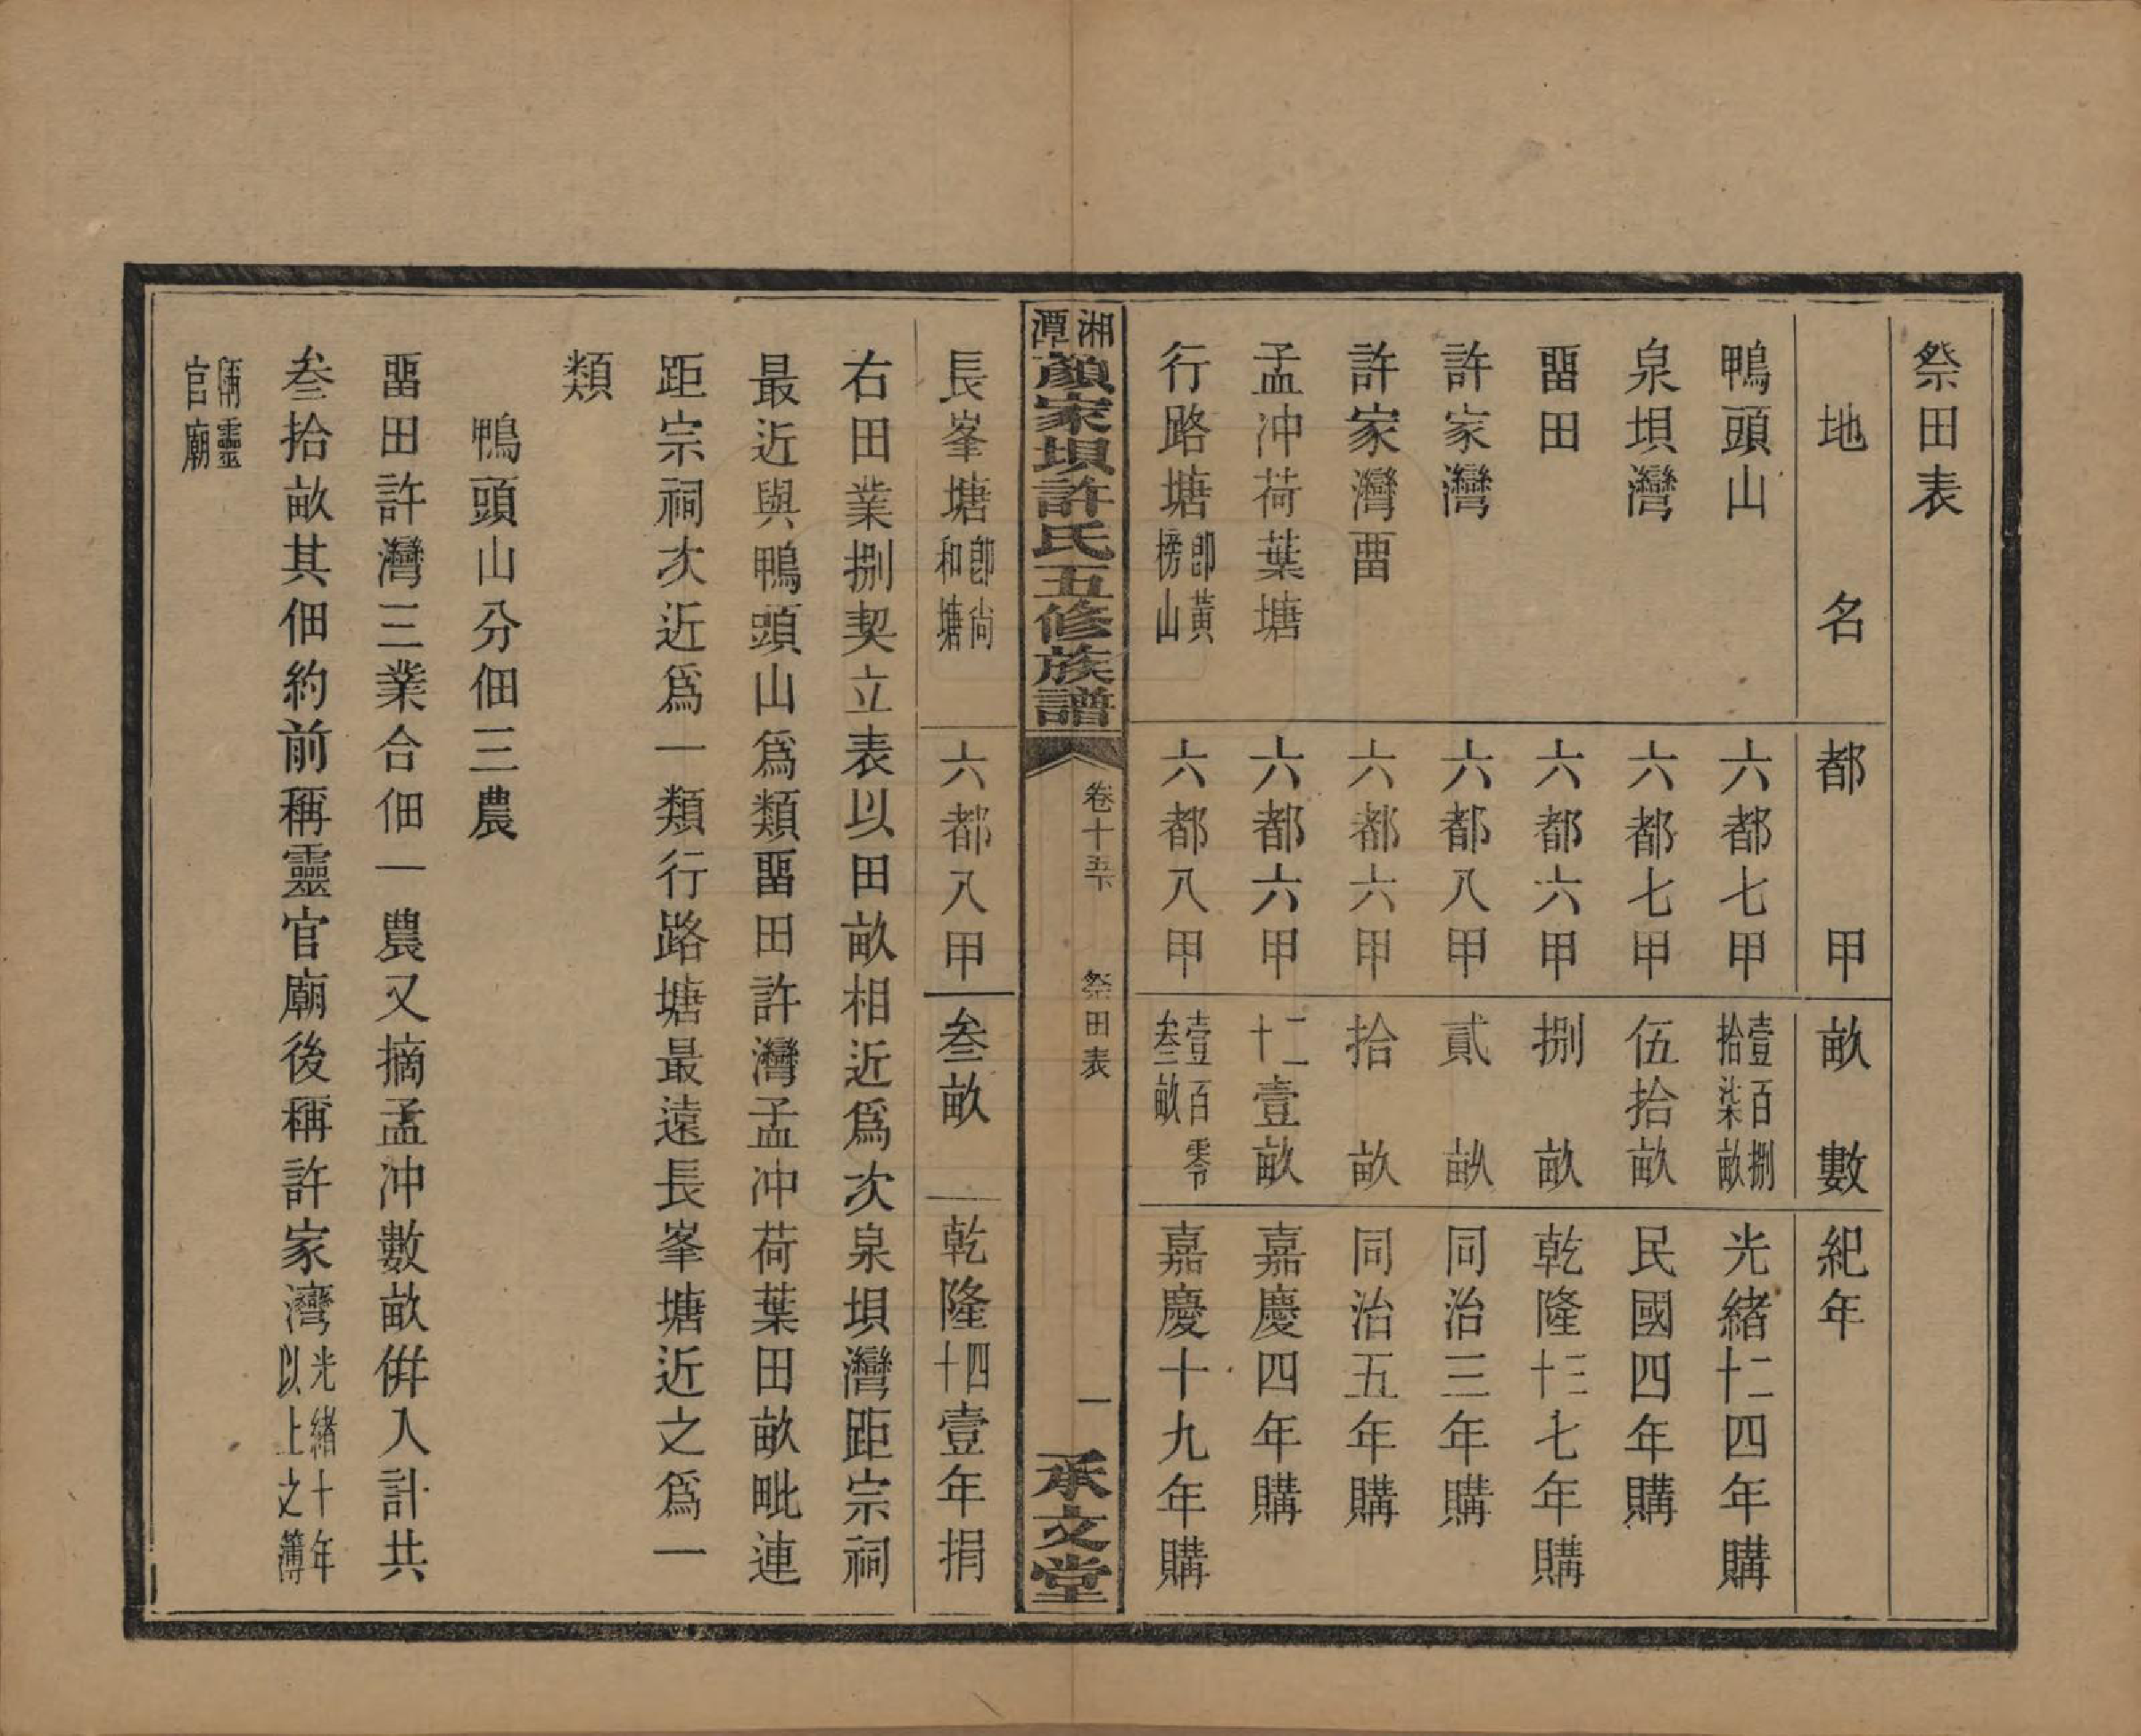 祭田表
地名 都甲 畝數 紀年
鴨頭山 六都七甲 壹百捌拾柒畝 光緒二十四年購
泉垻灣 六都七甲 伍拾畝 民國四年購
畱田 六都六甲 捌畝 乾隆三十七年購
許家灣 六都八甲 貳畝 同治三年購
許家灣畱 六都六甲 拾畝 同治五年購
孟冲荷葉塘 六都六甲 二十壹畝 嘉慶四年購
行路塘卽黃榜山 六都八甲 壹百零叁畝 嘉慶十九年購
湘潭顏家垻許氏五修族譜 卷十五下 祭田表 一 承文堂
長峯塘卽尙和塘 六都八甲 叁畝 乾隆四十壹年捐
右田業捌契立表以田畝相近爲次泉垻灣距宗祠
最近與鴨頭山爲類畱田許灣孟冲荷葉田畝毗連
距宗祠次近爲一類行路塘最遠長峯塘近之爲一
類
鴨頭山分佃三農
畱田許灣三業合佃一農又摘孟冲數畝併入計共
叁拾畝其佃約前稱靈官廟後稱許家灣光緒十年以上之簿
稱靈官廟